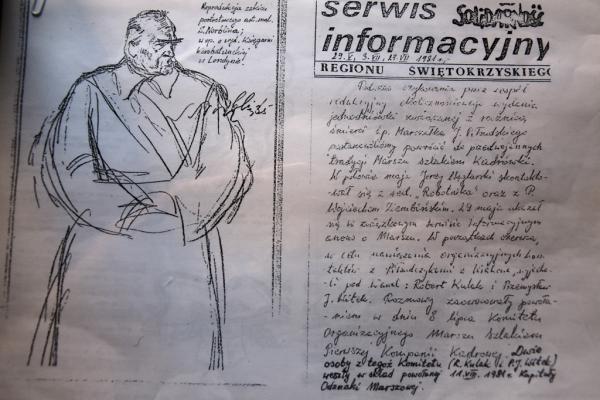 Reprodukcja szkicu
portretowego art. mal.
w op. o wyd. Księgarni
w Londynie.
serwis Solidarność
informacyjny
29.V, 3.VII, 27.VII 1981 r.
REGIONU ŚWIĘTOKRZYSKIEGO
Podczas przez zespół
redakcyjny okolicznościowego wydania
jednodniówki związanej z rocznicą
śmierci śp. Marszałka J. Piłsudskiego
postanowiliśmy powrócić do przedwojennych
tradycji Marszu Szlakiem Kadrówki.
W połowie maja Jerzy skontakto-
wał się z red. "Robotnika" oraz z P.
Wojciechem Ziembińskim. 29 maja ukazał
się w związkowym serwisie informacyjnym
anons o Marszu. W początkach czerwca,
w celu nawiązania organizacyjnych kon-
taktów z Piłsudczykami z Krakowa wyjecha-
li pod Wawel: Robert Kulak i Przemysław
J. Witek. Rozmowy zaowocowały powoła-
niem w dniu 8 lipca Komitetu
Organizacyjnego Marszu Szlakiem
Pierwszej Kompanii Kadrowej. Dwie
osoby z tegoż Komitetu (R. Kulak i P.J. Witek)
weszły w skład powołanej 11.VIII.1981 r. Kapituły
Odznaki Marszowej.